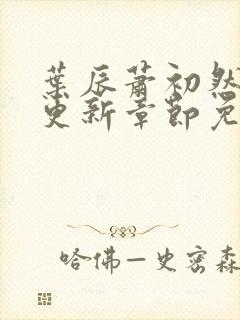 葉辰蕭初然
更新章節免
哈佛–史密森